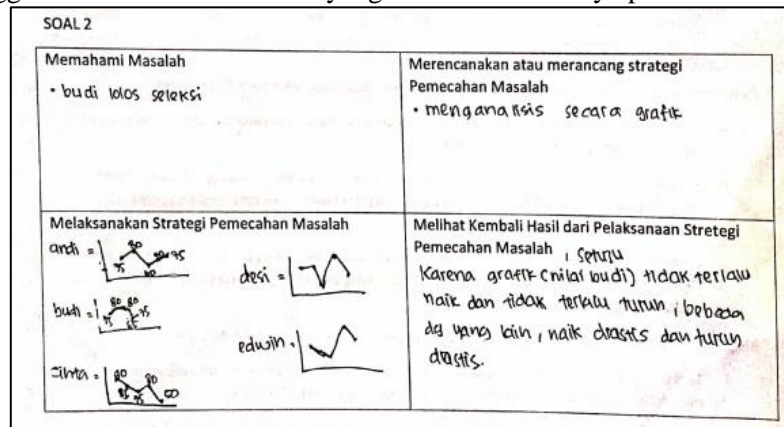 SOAL 2
Memahami Masalah
• budi lolos seleksi
Merencanakan atau merancang strategi
Pemecahan Masalah
• menganalisis secara grafik
Melaksanakan Strategi Pemecahan Masalah
andi =
75 80 75
budi =
75 80 80 75
cinta =
90 80 75 60
desi =
edwin =
Melihat Kembali Hasil dari Pelaksanaan Stretegi
Pemecahan Masalah , setuju
Karena grafik (nilai budi) tidak terlalu
naik dan tidak terlalu turun ; bebeda
dg yang lain , naik drastis dan turun
drastis.